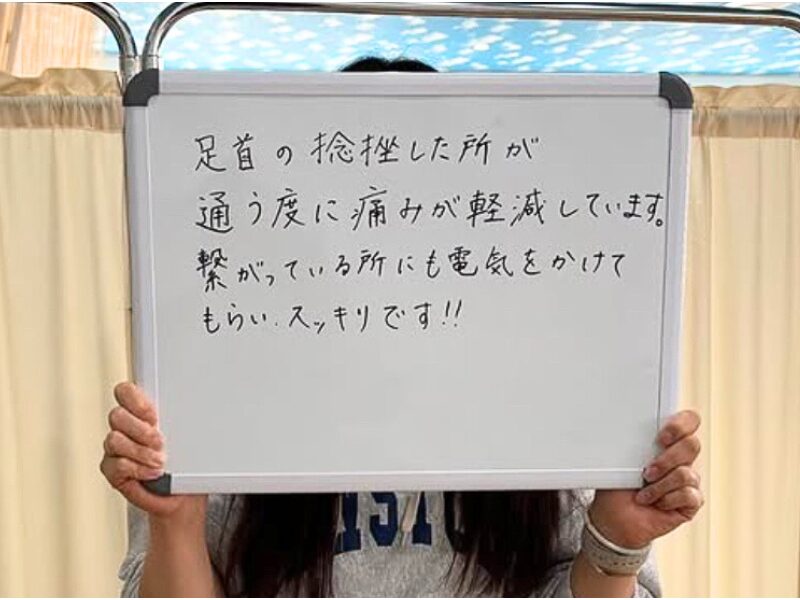 足首の捻挫した所が
通う度に痛みが軽減しています。
繋がっている所にも電気をかけて
もらい、スッキリです!!